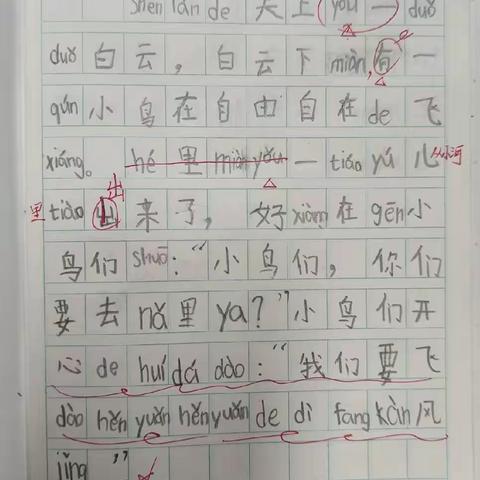 shēn lán de 天上 yǒu 一 duǒ
duǒ 白云，白云下 miàn, 有一
qún 小鸟在自由自在 de 飞
xiáng。 hé 里 miàn yǒu 一 tiáo yú 儿 从小河
里 tiào 出 出来了，好 xiàng 在 gēn 小
鸟们 shuō：“小鸟们，你们
要去 nǎ 里 ya？”小鸟们开
心 de huí dá dào：“我们要飞
dào hěn yuǎn hěn yuǎn de dì fang kàn 风
jǐng ”